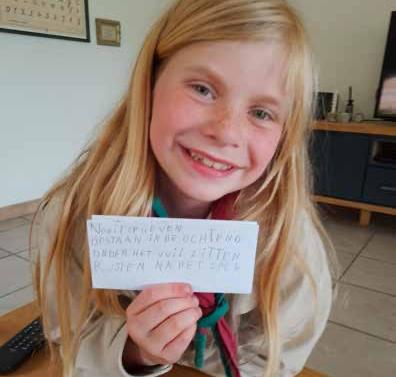 NooiT OPGEVEN
OPSTAAN IN DE OCHTEND
ONDER HET VUIL ZITTEN
RUSTEN NA HET SPEL